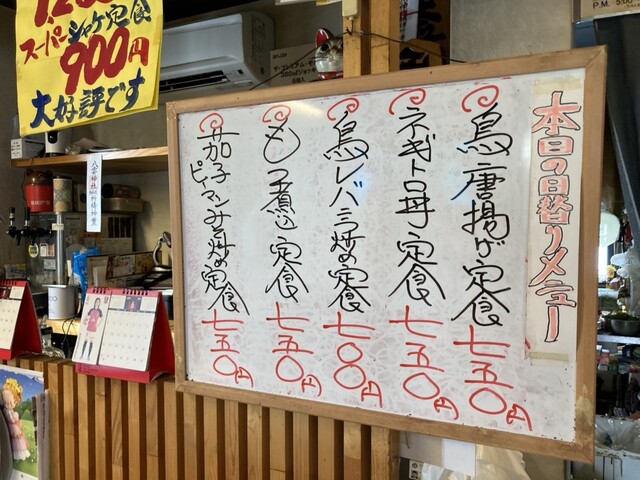 本日の日替りメニュー
鳥唐揚げ定食 七五〇円
ネギトロ丼定食 七五〇円
鳥レバニラ炒め定食 七〇〇円
もつ煮込定食 七五〇円
茄子ピーマンみそ炒め定食 七五〇円
スーパーシャケ定食
900円
大好評です
P.M. 5:00